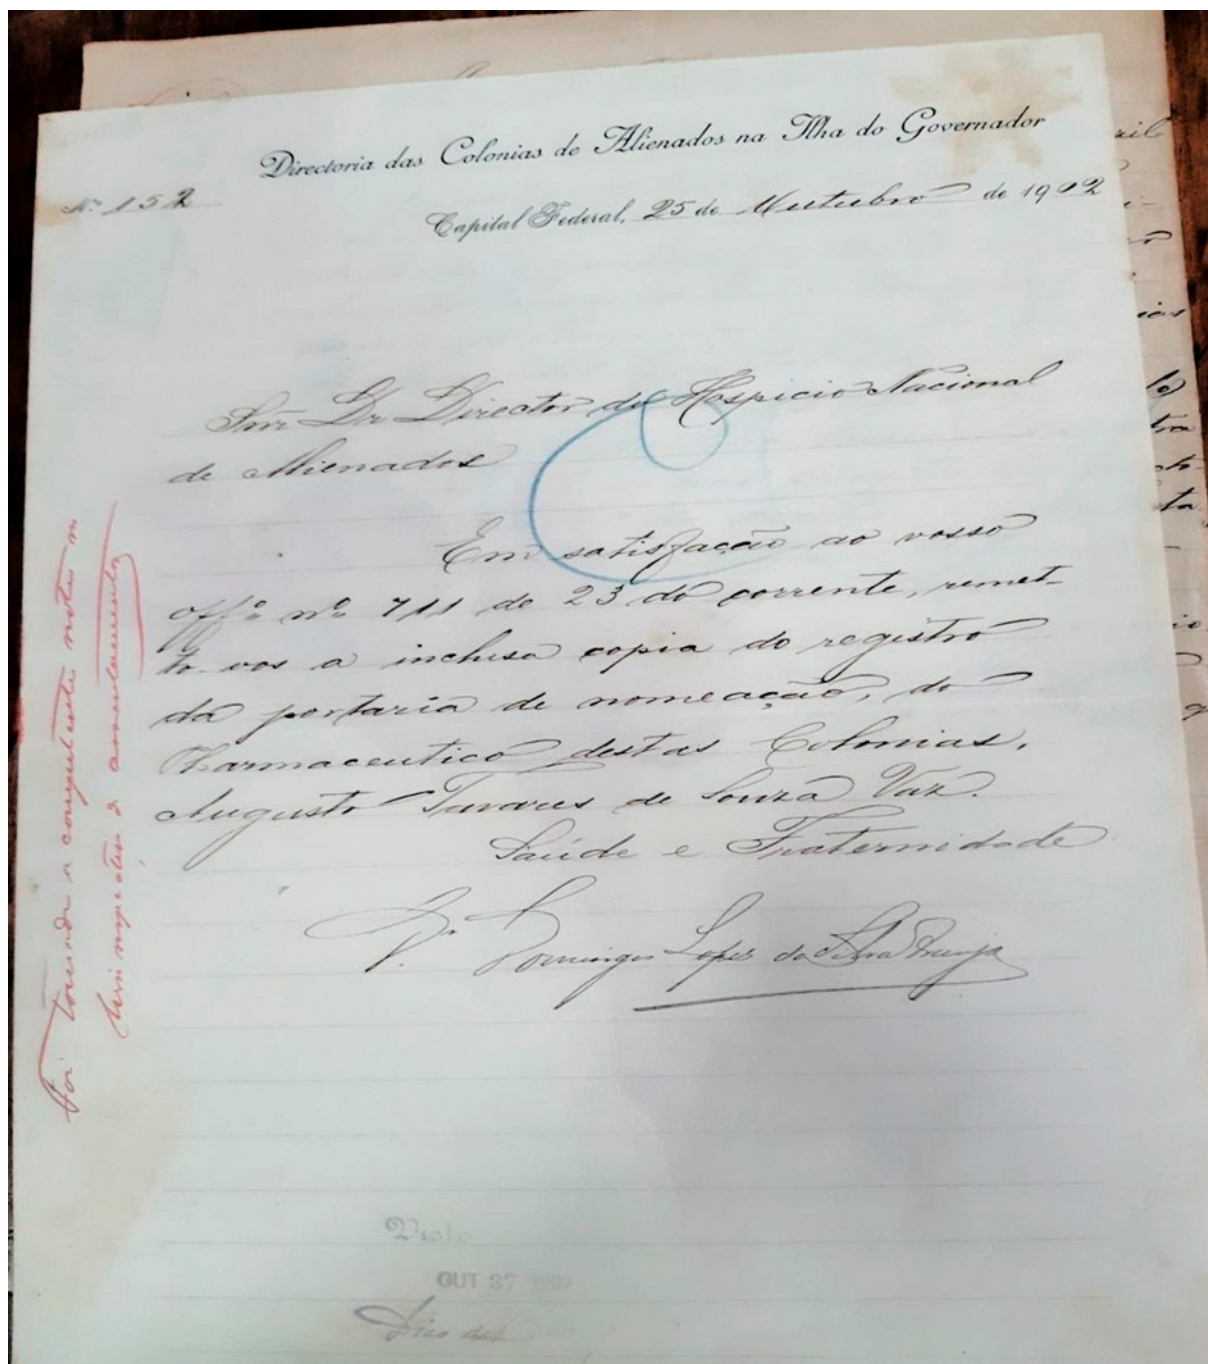 Directoria das Colonias de Alienados na Ilha do Governador
Nº 152
Capital Federal, 25 de Outubro de 1902
Snr. Dr. Director do Hospicio Nacional
de Alienados
Em satisfação ao vosso
offº nº 711 de 23 do corrente, remet-
to-vos a inclusa copia do registro
da portaria de nomeação, do
Pharmaceutico destas Colonias,
Augusto Tavares de Souza Vaz.
Saúde e Fraternidade
Dr. Domingos Lopes da Silva Araujo
Foi tomada a competente nota no
livro
Visto
OUT 27 1902